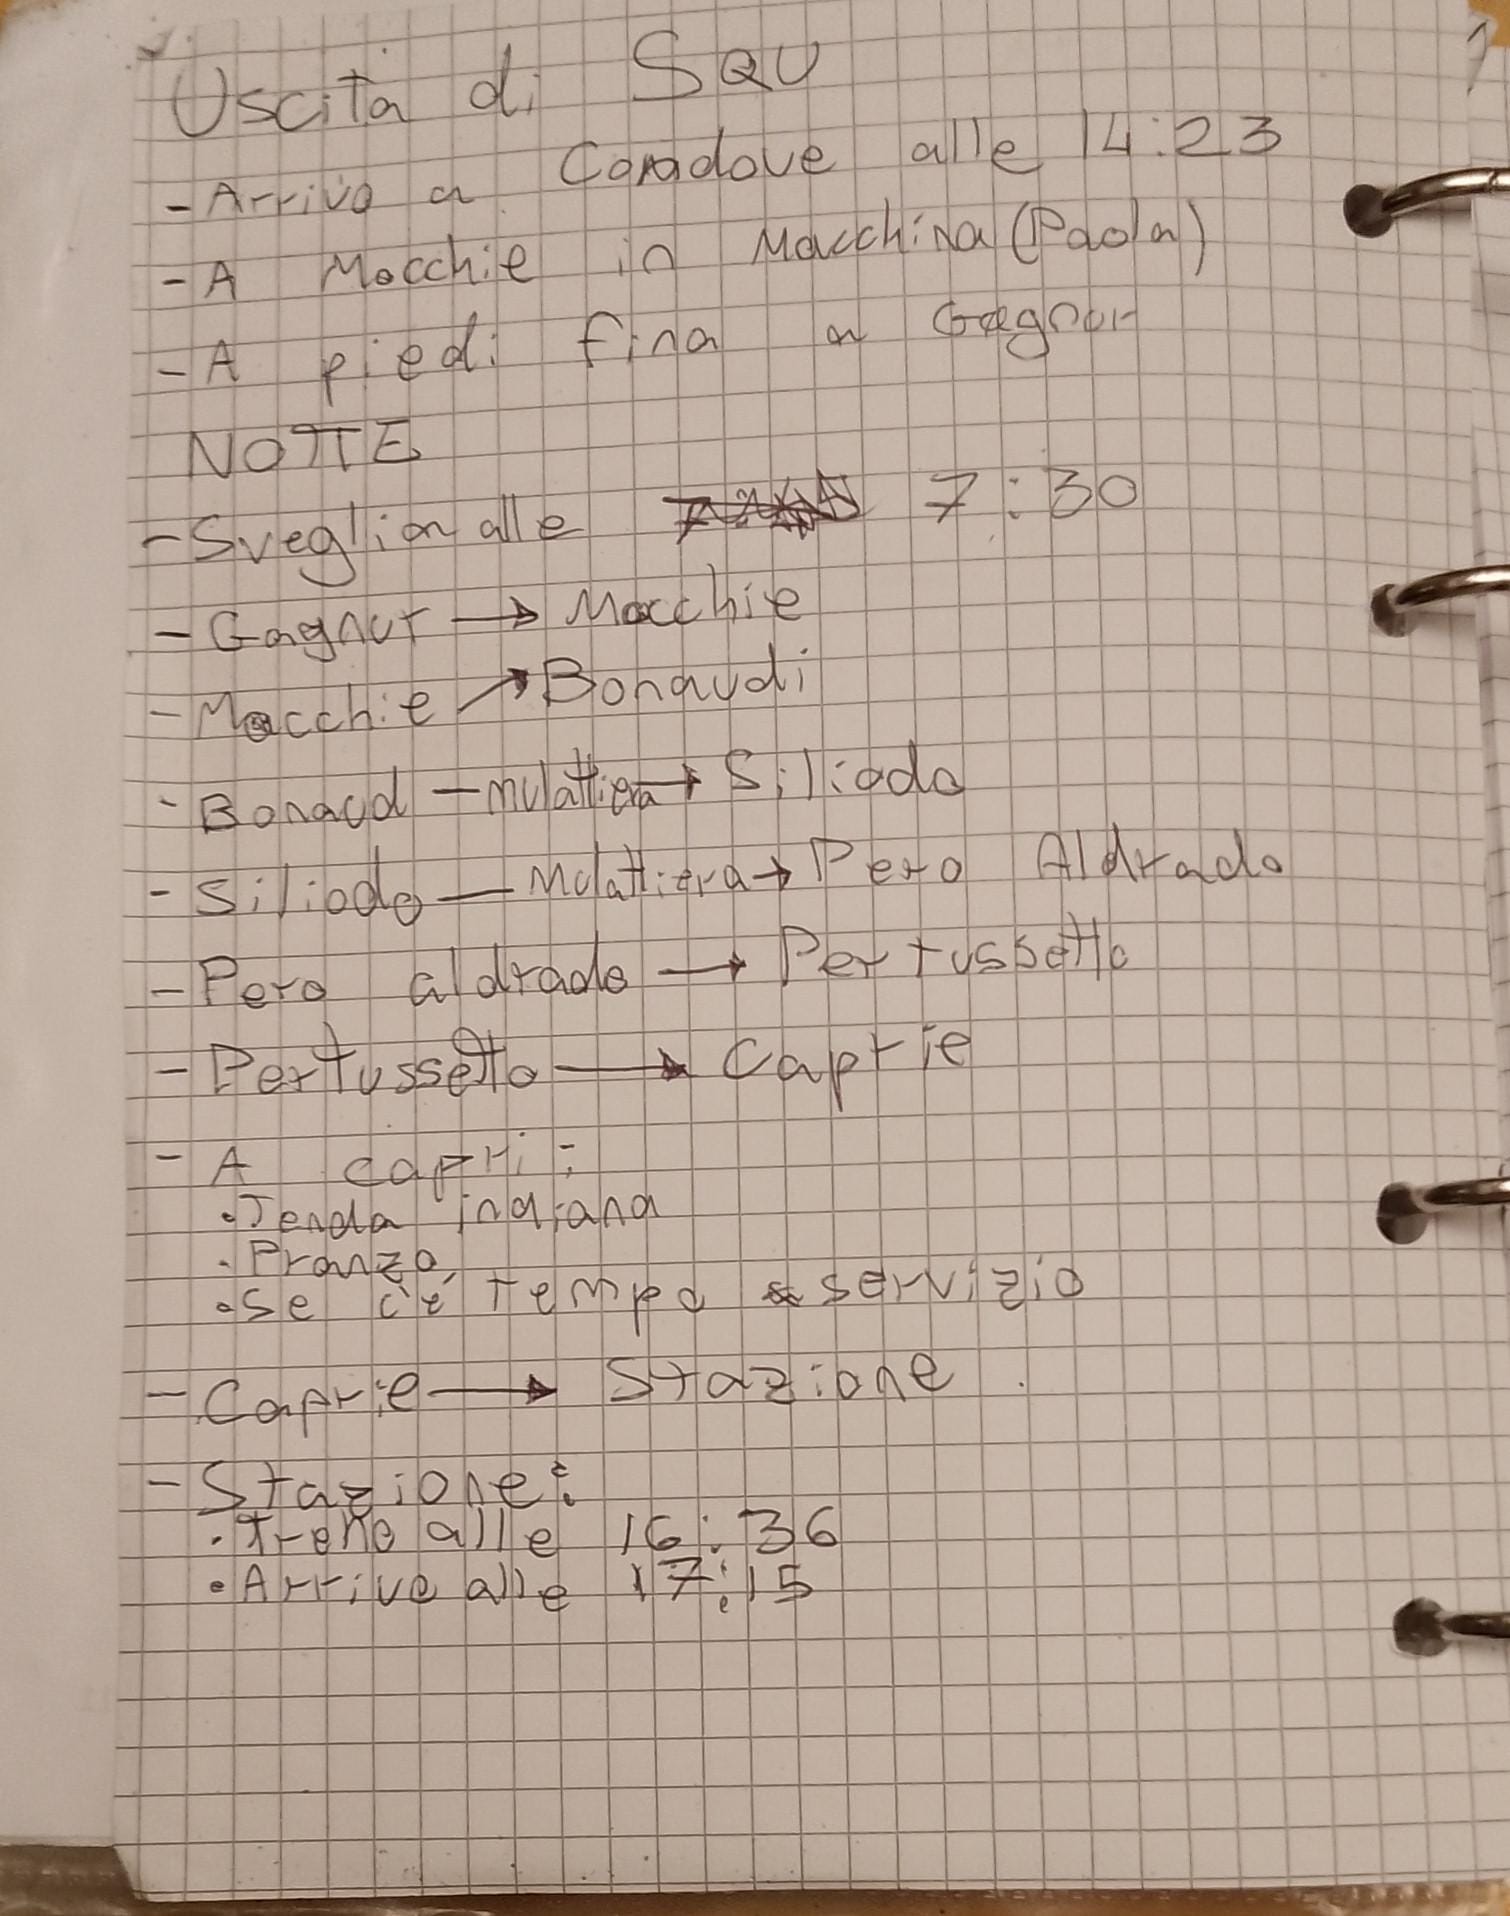 Uscita di SQU
- Arrivo a Condove alle 14:23
- A Mocchie in Macchina (Paola)
- A piedi fino a Gagnor
NOTTE
- Sveglia alle 7:30
- Gagnor → Mocchie
- Mocchie → Bonaudi
- Bonaud — mulattiera → Siliodo
- Siliodo — Mulattiera → Pero Aldrado
- Pero aldrado → Pertussetto
- Pertussetto → Caprie
- A capri:
• Tenda indiana
• Pranzo
• Se c'è tempo servizio
- Caprie → Stazione
- Stazione:
• Treno alle 16:36
• Arrivo alle 17:15